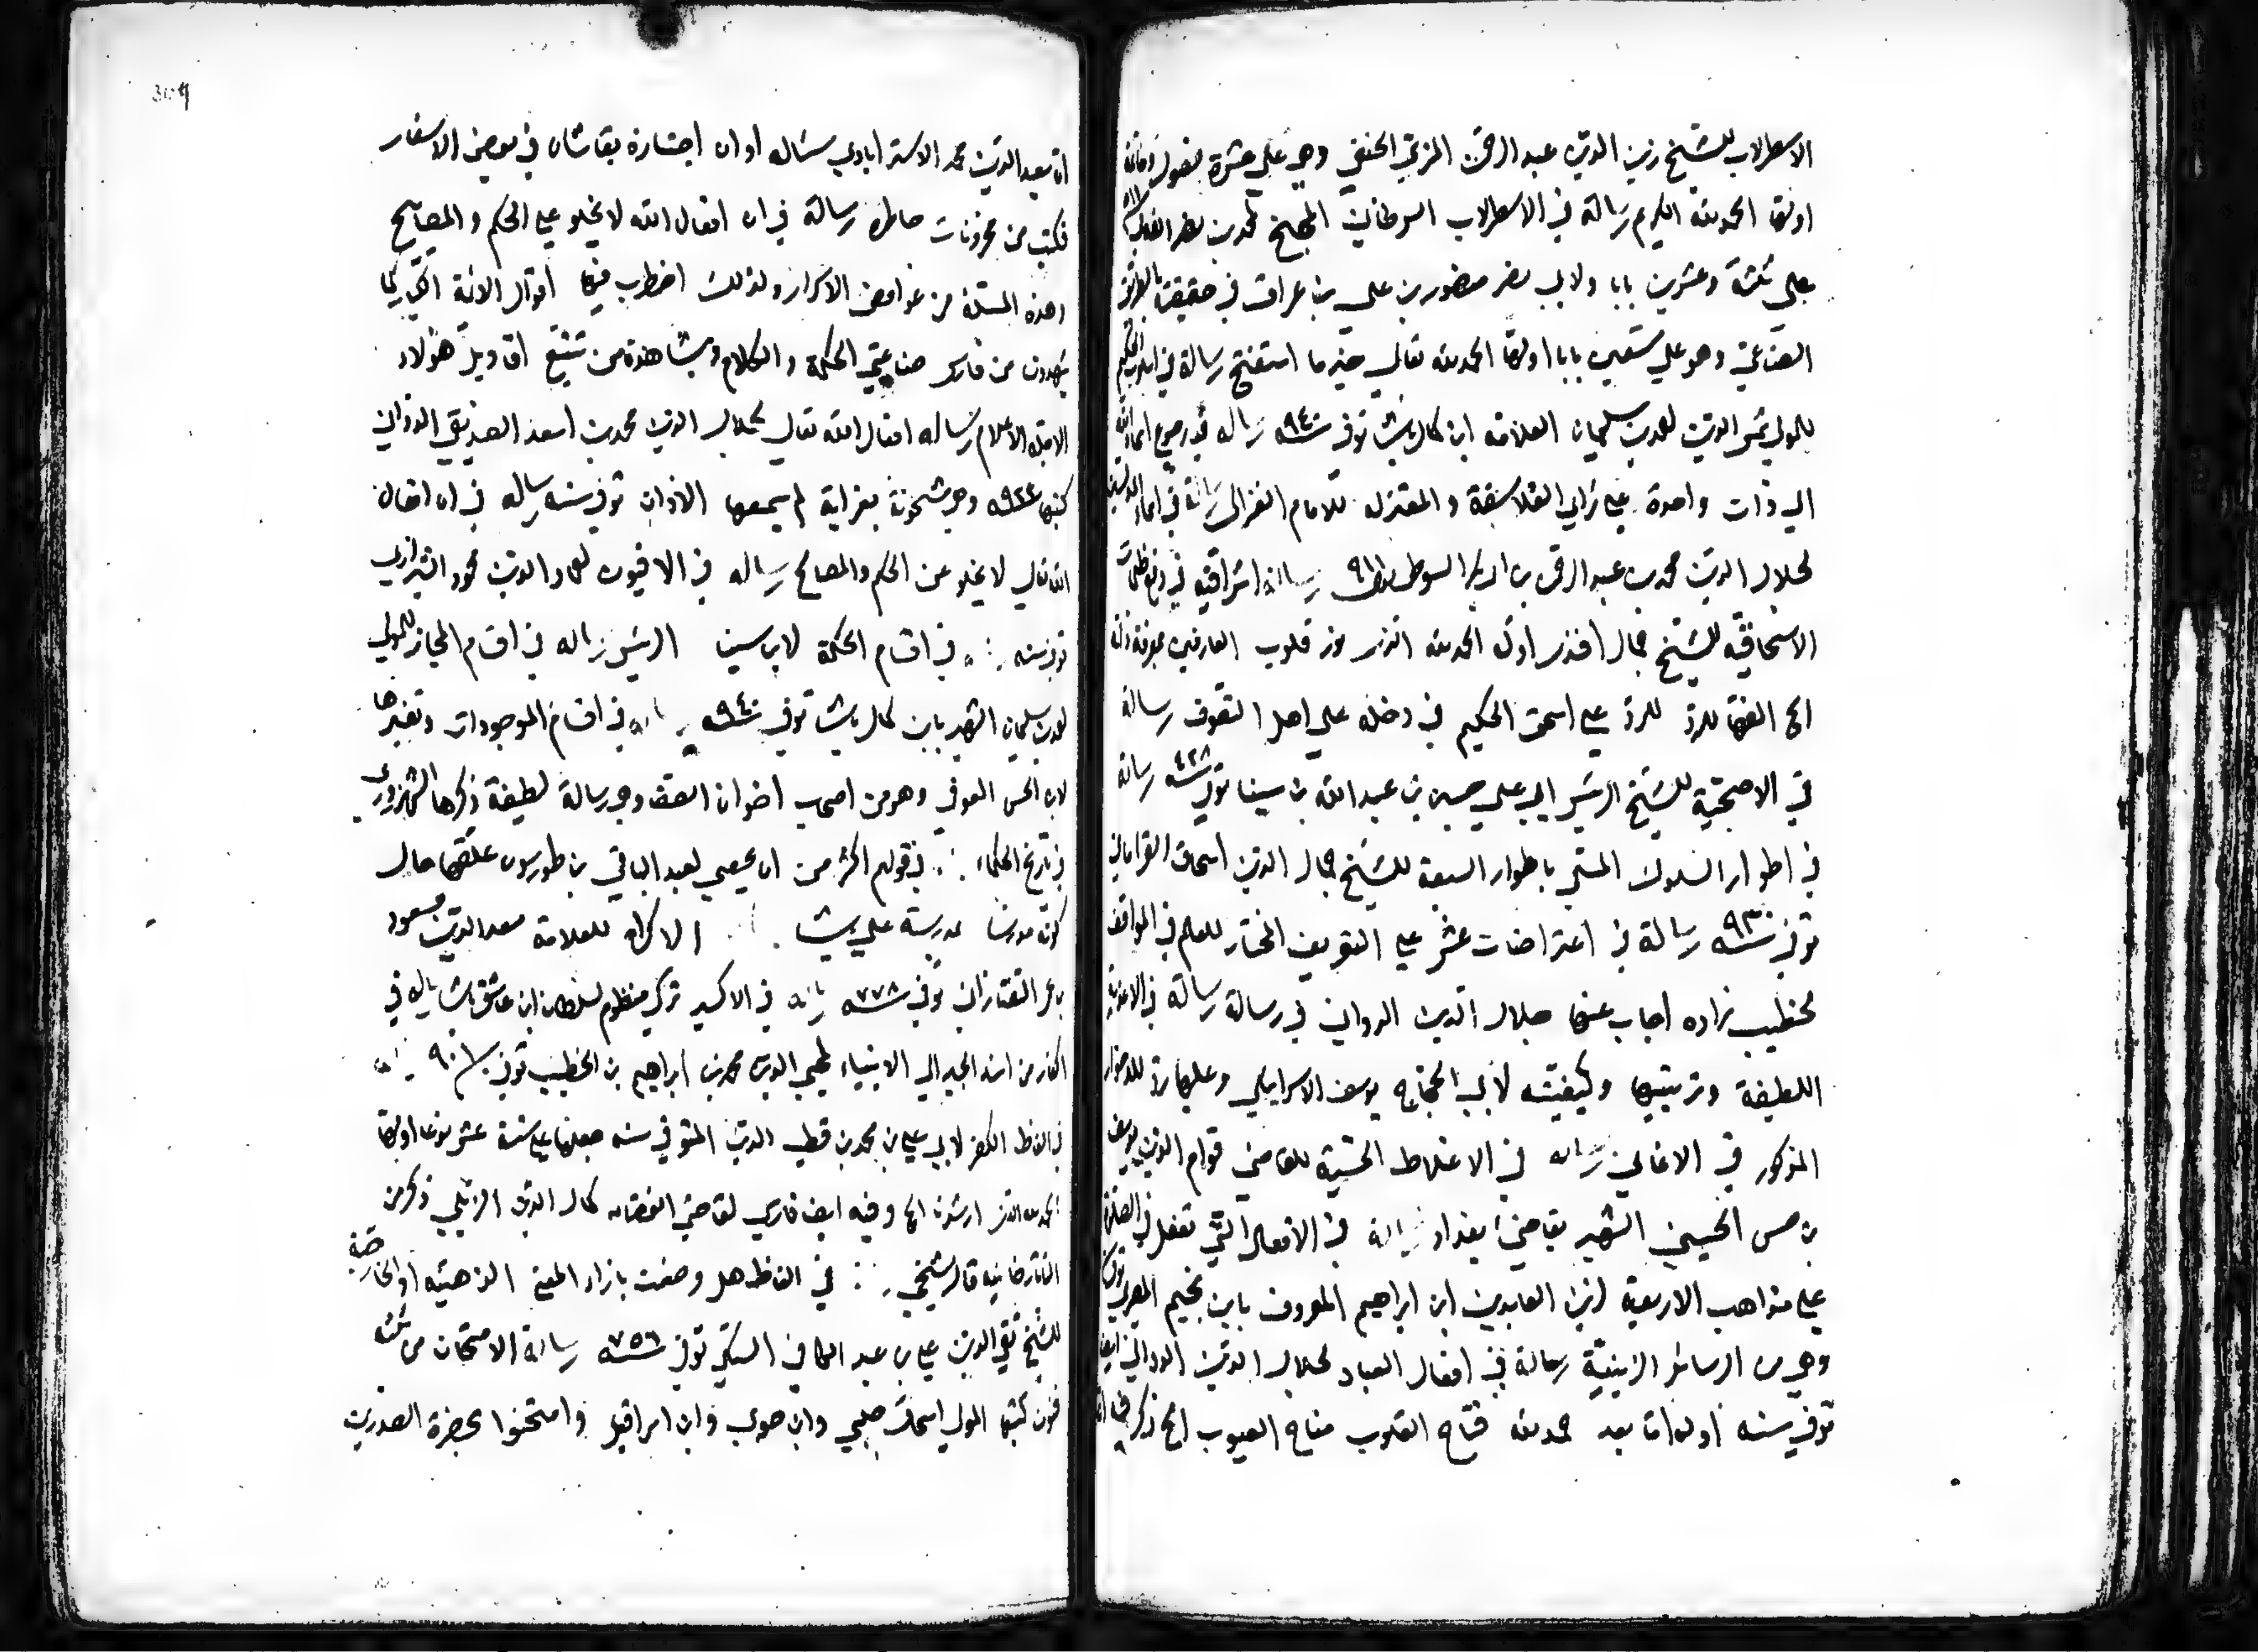 الاسطرلاب للشيخ زين الدين عبد الرحمن المزي الحنفي وهي على عشرة فصول وخاتمة
اولها الحمد لله الكريم رسالة في الاسطرلاب السرطاني المجنح لمحمد بن نصر
على ثلثة وعشرين بابا ولابي نصر منصور بن علي بن عراق في حقيقته بالطريق
الصناعي وهو على ستين بابا اولها الحمد لله تعالى خير ما استفتح رسالة في اسلوب الحكيم
للمولى شمس الدين احمد بن سليمان العلامة ابن كمال باشا توفي سنه ٩٤٠ رساله في رجوع اسماء الله
الى ذات واحدة على رأي الفلاسفة والمعتزلة للامام الغزالي رسالة في اسماء المدلسين
لجلال الدين محمد بن عبد الرحمن بن ابي بكر السيوطي ٩١١ رسالة اشراقيه في دفع ظلمات
الاسحاقيه للشيخ جمال افندي اوله الحمد لله الذي نور قلوب العارفين بمعرفة ذاته
الخ الفها للرد للرد على اسحق الحكيم في دخله على اهل التصوف رسالة
في الاضحية للشيخ الرئيس ابي علي حسين بن عبد الله بن سينا توفي سنه ٤٢٨ رسالة
في اطوار السلوك المسمى باطوار السبعة للشيخ جمال الدين اسحاق القراماني
توفي سنه ٩٣٠ رسالة في اعتراضات عشر على التعريف المختار للعلم في المواقف
لخطيب زاده اجاب عنها جلال الدين الدواني في رسالة رسالة في الاغذية
اللطيفة وترتيبها وكيفيته لابي الحجاج يوسف الاسرايلي وعليها رد للدخوار
المذكور في الاغاني رسالة في الاغلاط الحسية للقاضي قوام الدين يوسف
بن حسن الحسيني الشهير بقاضي بغداد رسالة في الافعال التي تفعل في الصلوة
على مذاهب الاربعة لزين العابدين ابن ابراهيم المعروف بابن نجيم المصري توفي
وهي من الرسائل الزينية رسالة في افعال العباد لجلال الدين الدواني ايضا
توفي سنه اوله اما بعد حمد لله فتاح القلوب مناح العيوب الخ ذكر فيها
ان سعيد الدين محمد الاسترابادي سئاله اوان اجتيازه بقاشان في بعض الاسفار
فكتب من مخزونات خاطره رسالة في ان افعال الله لا يخلو على الحكم والمصالح
وهذه المسئلة من غوامض الاسرار ولذلك اضطرب فيها اقوال الائمة الكبار كما
يشهدون من مارس صناعتي الحكمة والكلام ويشاهده من تتبع اقاويل هؤلاء
الاجلة الاعلام رساله افعال الله تعالى لجلال الدين محمد بن اسعد الصديقي الدواني
كتبها وهي مشحونة بغرايه لم يسمعها الاذان توفي سنه رساله في ان افعال
الله تعالى لا يخلو عن الحكم والمصالح رساله في الافيون لعماد الدين محمود الشيرازي
توفي سنه في اقسام الحكمة لابن سينا الرئيس رساله في اقسام المجاز للمولى
احمد بن سليمان الشهير بابن كمال باشا توفي سنه ٩٤٠ رساله في اقسام الموجودات وتفسيرها
لابي الحسن العوفي وهو من اصحاب اخوان الصفا وهي رسالة لطيفة ذكرها الشهرزوري
في تاريخ الحكماء في قولهم اكثر من ان يحصى لعبد الباقي بن طورسون علقها حال
كونه مدرسا بمدرسة علي باشا الاكراه للعلامة سعد الدين مسعود
بن عمر التفتازاني توفي سنه ٧٧٨ رساله في الاكسير تركي منظوم لسلطان ابن عاشق باشا رساله في
الفاز من اسند الجبر الى الانبياء لمحيي الدين محمد بن ابراهيم بن الخطيب توفي سنه ٩٠١
في الفاظ الكفر لابي علي بن محمد بن قطب الدين المتوفي سنه جعلها على ستة عشر نوعا اولها
الحمد لله الذي ارشدنا الخ وفيه ايضا فارسي لقاضي القضاه كمال الدين الزيلي ذكر من
التاتارخانيه قال شيخي في الفاظ هل وضعت بازاء المعنى الذهنيه او الخارجية
للشيخ تقي الدين علي بن عبد الكافي السبكي توفي سنه ٧٥٦ رسالة الامتحان من ثلثه
فنون كتبها المولى اسحاق چلبي وابن جوي وابن اسرافيل وامتحنوا بحضرة الصدرين